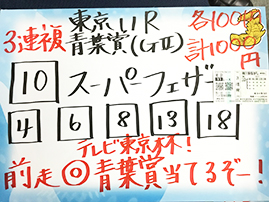 3連複 東京11R 各100円
青葉賞(GⅡ) 計1000円
10 スーパーフェザー
4 6 8 13 18
テレビ東京杯!
前走◎青葉賞当てるぞー!